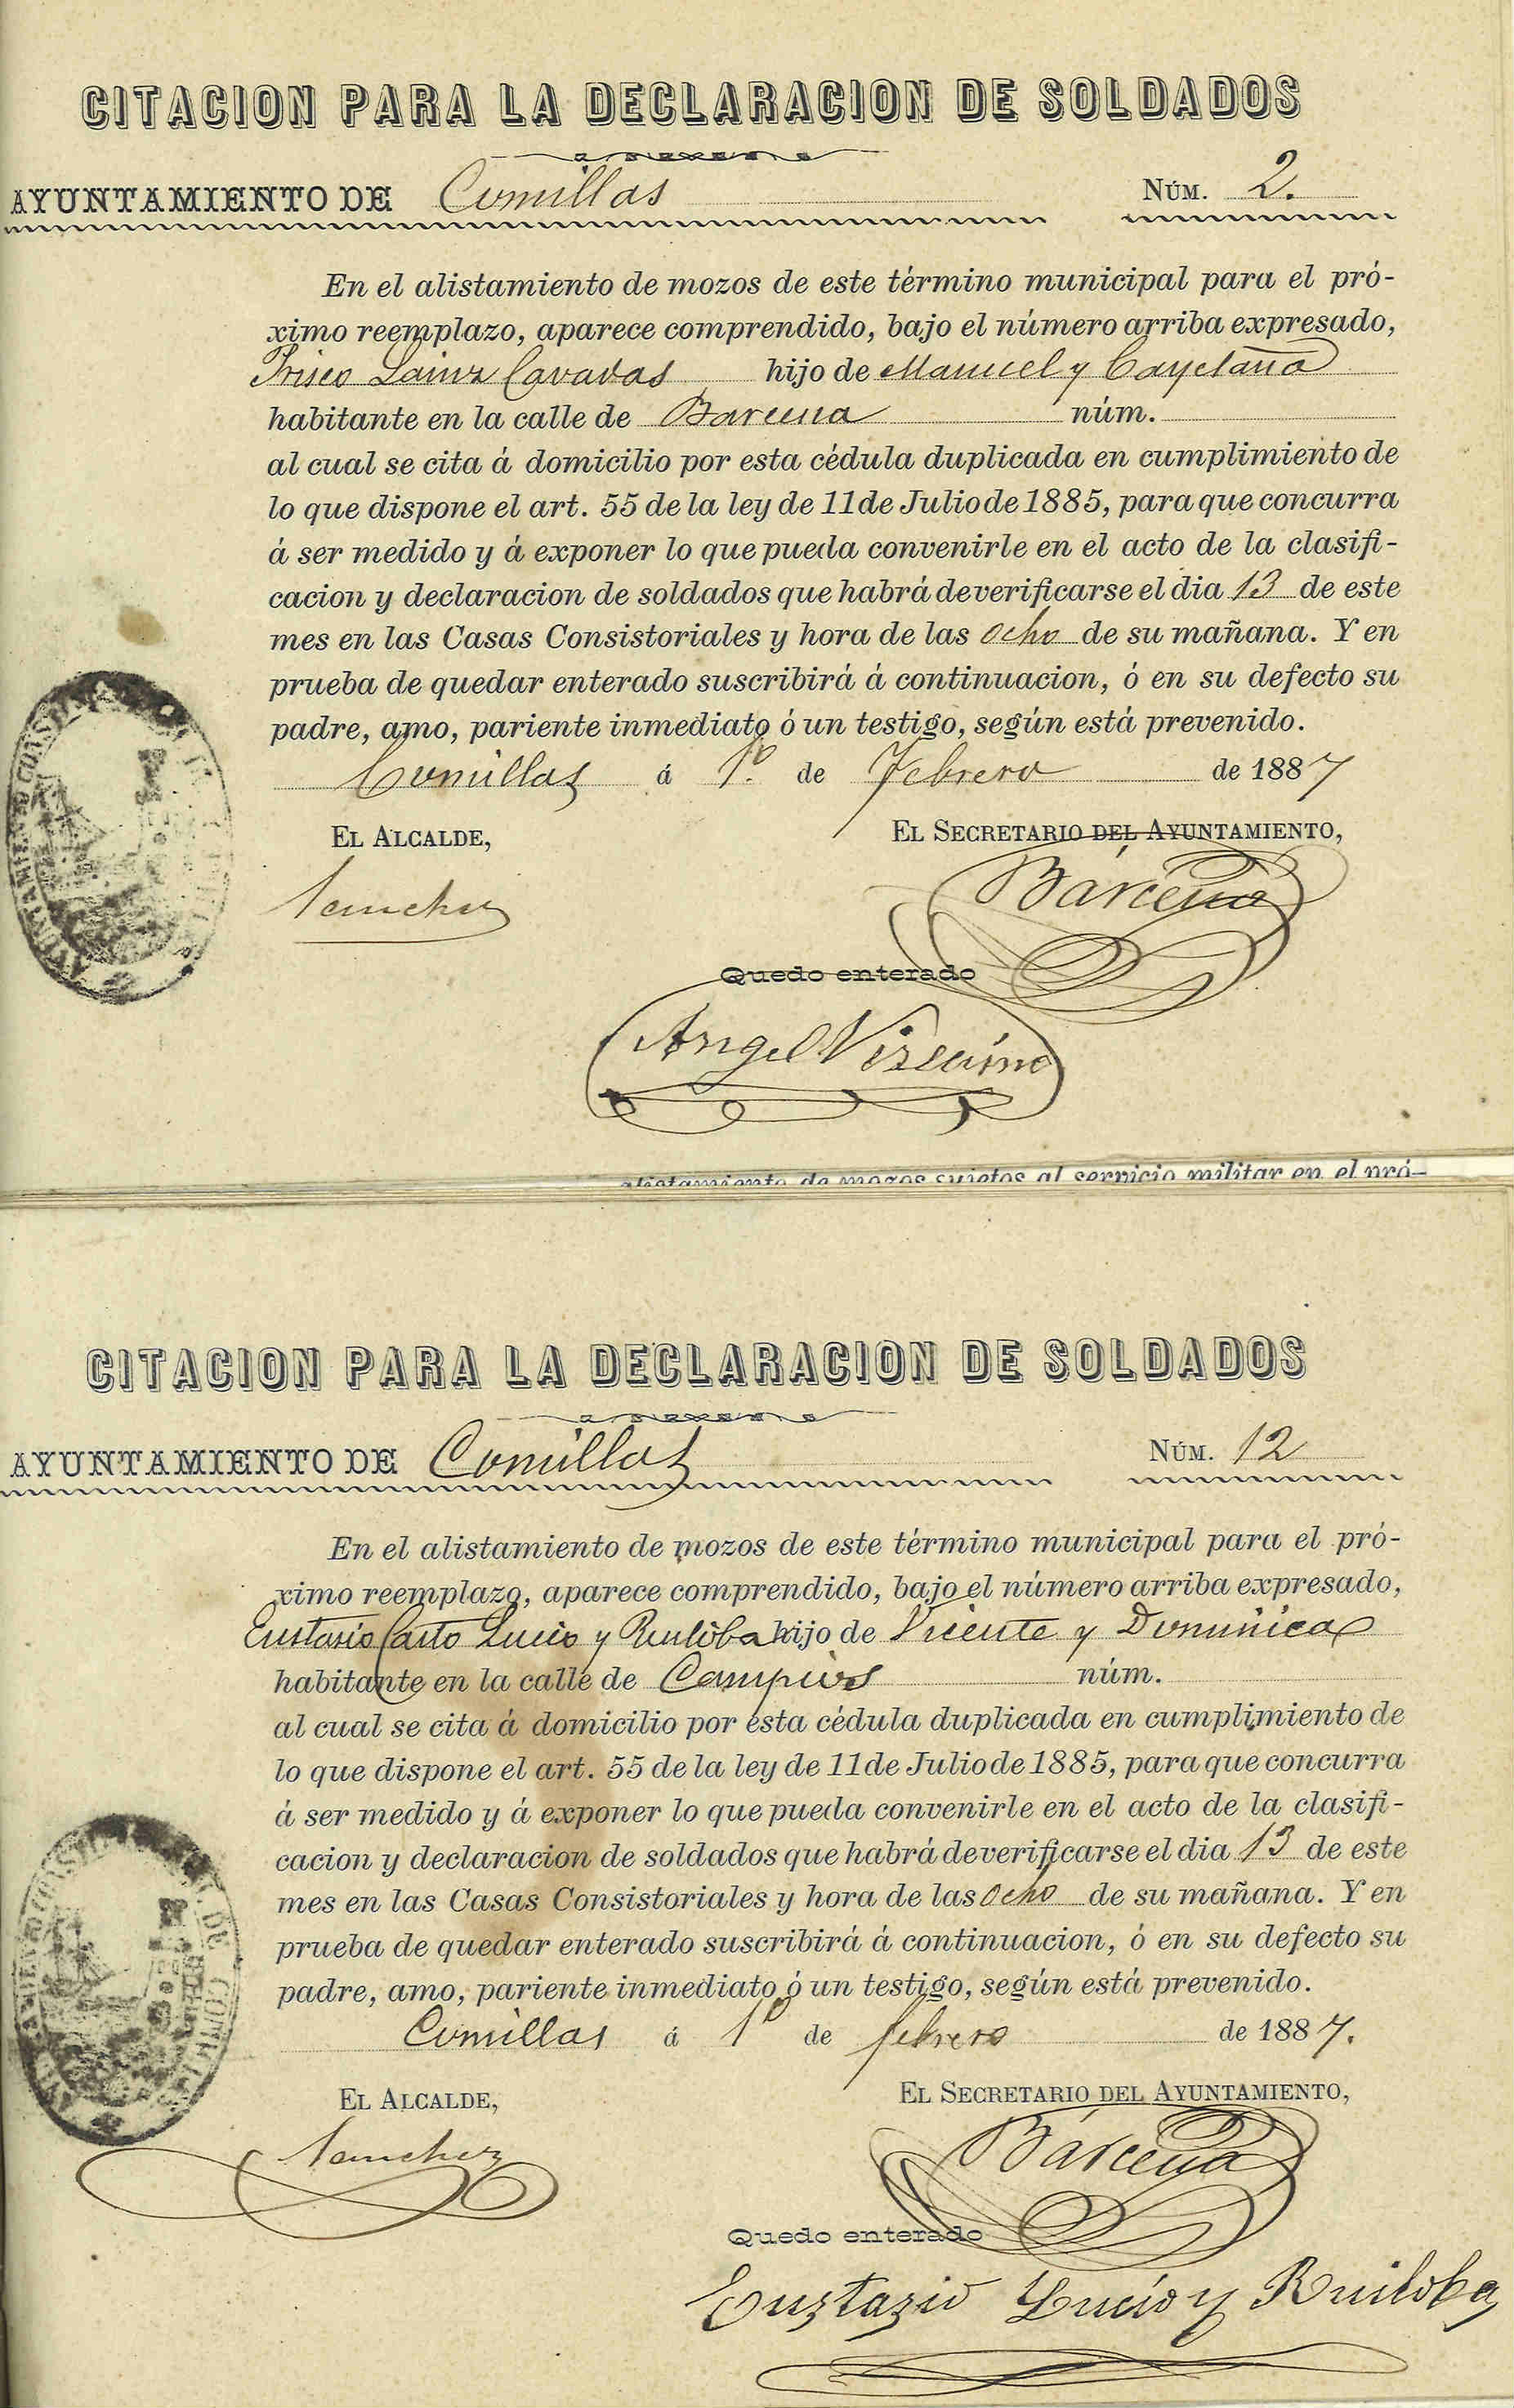 CITACION PARA LA DECLARACION DE SOLDADOS
AYUNTAMIENTO DE Comillas NÚM. 2.
En el alistamiento de mozos de este término municipal para el pró-
ximo reemplazo, aparece comprendido, bajo el número arriba expresado,
Prisco Lainz Cavadas hijo de Manuel y Cayetana
habitante en la calle de Barcena núm.
al cual se cita á domicilio por esta cédula duplicada en cumplimiento de
lo que dispone el art. 55 de la ley de 11 de Julio de 1885, para que concurra
á ser medido y á exponer lo que pueda convenirle en el acto de la clasifi-
cacion y declaracion de soldados que habrá de verificarse el dia 13 de este
mes en las Casas Consistoriales y hora de las ocho de su mañana. Y en
prueba de quedar enterado suscribirá á continuacion, ó en su defecto su
padre, amo, pariente inmediato ó un testigo, según está prevenido.
Comillas á 1.º de Febrero de 1887
EL ALCALDE, EL SECRETARIO DEL AYUNTAMIENTO,
Sanchez Bárcena
Quedo enterado
Angel Vizcaino
alistamiento de mozos sujetos al servicio militar en el pró-
CITACION PARA LA DECLARACION DE SOLDADOS
AYUNTAMIENTO DE Comillas NÚM. 12
En el alistamiento de mozos de este término municipal para el pró-
ximo reemplazo, aparece comprendido, bajo el número arriba expresado,
Eustasio Casto Lucio y Ruiloba hijo de Vicente y Dominica
habitante en la calle de Campios núm.
al cual se cita á domicilio por esta cédula duplicada en cumplimiento de
lo que dispone el art. 55 de la ley de 11 de Julio de 1885, para que concurra
á ser medido y á exponer lo que pueda convenirle en el acto de la clasifi-
cacion y declaracion de soldados que habrá de verificarse el dia 13 de este
mes en las Casas Consistoriales y hora de las ocho de su mañana. Y en
prueba de quedar enterado suscribirá á continuacion, ó en su defecto su
padre, amo, pariente inmediato ó un testigo, según está prevenido.
Comillas á 1º de febrero de 1887.
EL ALCALDE, EL SECRETARIO DEL AYUNTAMIENTO,
Sanchez Bárcena
Quedo enterado
Eustazio Lucio y Ruiloba